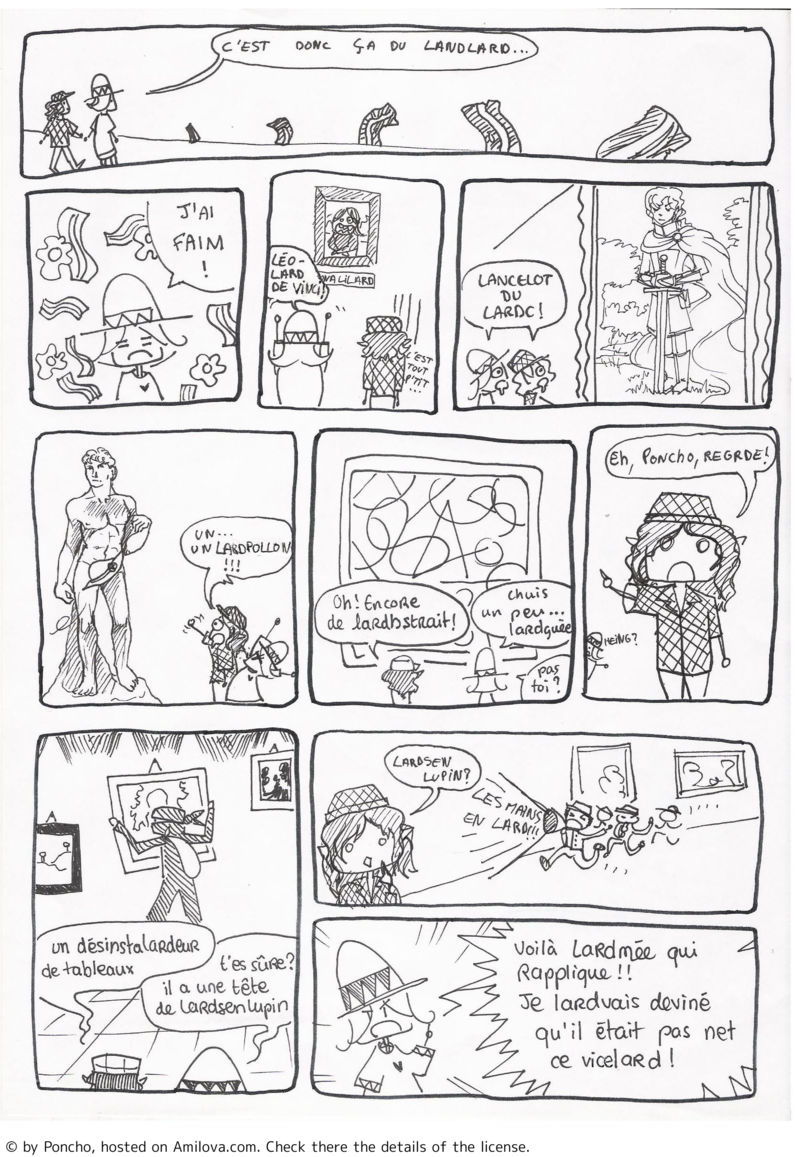 C'EST DONC ÇA DU LANDLARD...
J'AI
FAIM
!
LÉO-
LARD
DE VINCI!
C'EST
TOUT
P'TIT
...
LANCELOT
DU
LARDC!
UN...
UN LARDPOLLON
!!!
Oh! Encore
de lardbstrait!
chuis
un peu...
lardguée
pas
toi?
Eh, PONCHO, REGRDE!
HEING?
un désinstalardeur
de tableaux
t'es sûre?
il a une tête
de Lardsenlupin
LARDSEN
LUPIN?
LES MAINS
EN LARD!!!
Voilà Lardmée qui
Rapplique!!
Je lardvais deviné
qu'il était pas net
ce vicelard!
© by Poncho, hosted on Amilova.com. Check there the details of the license.